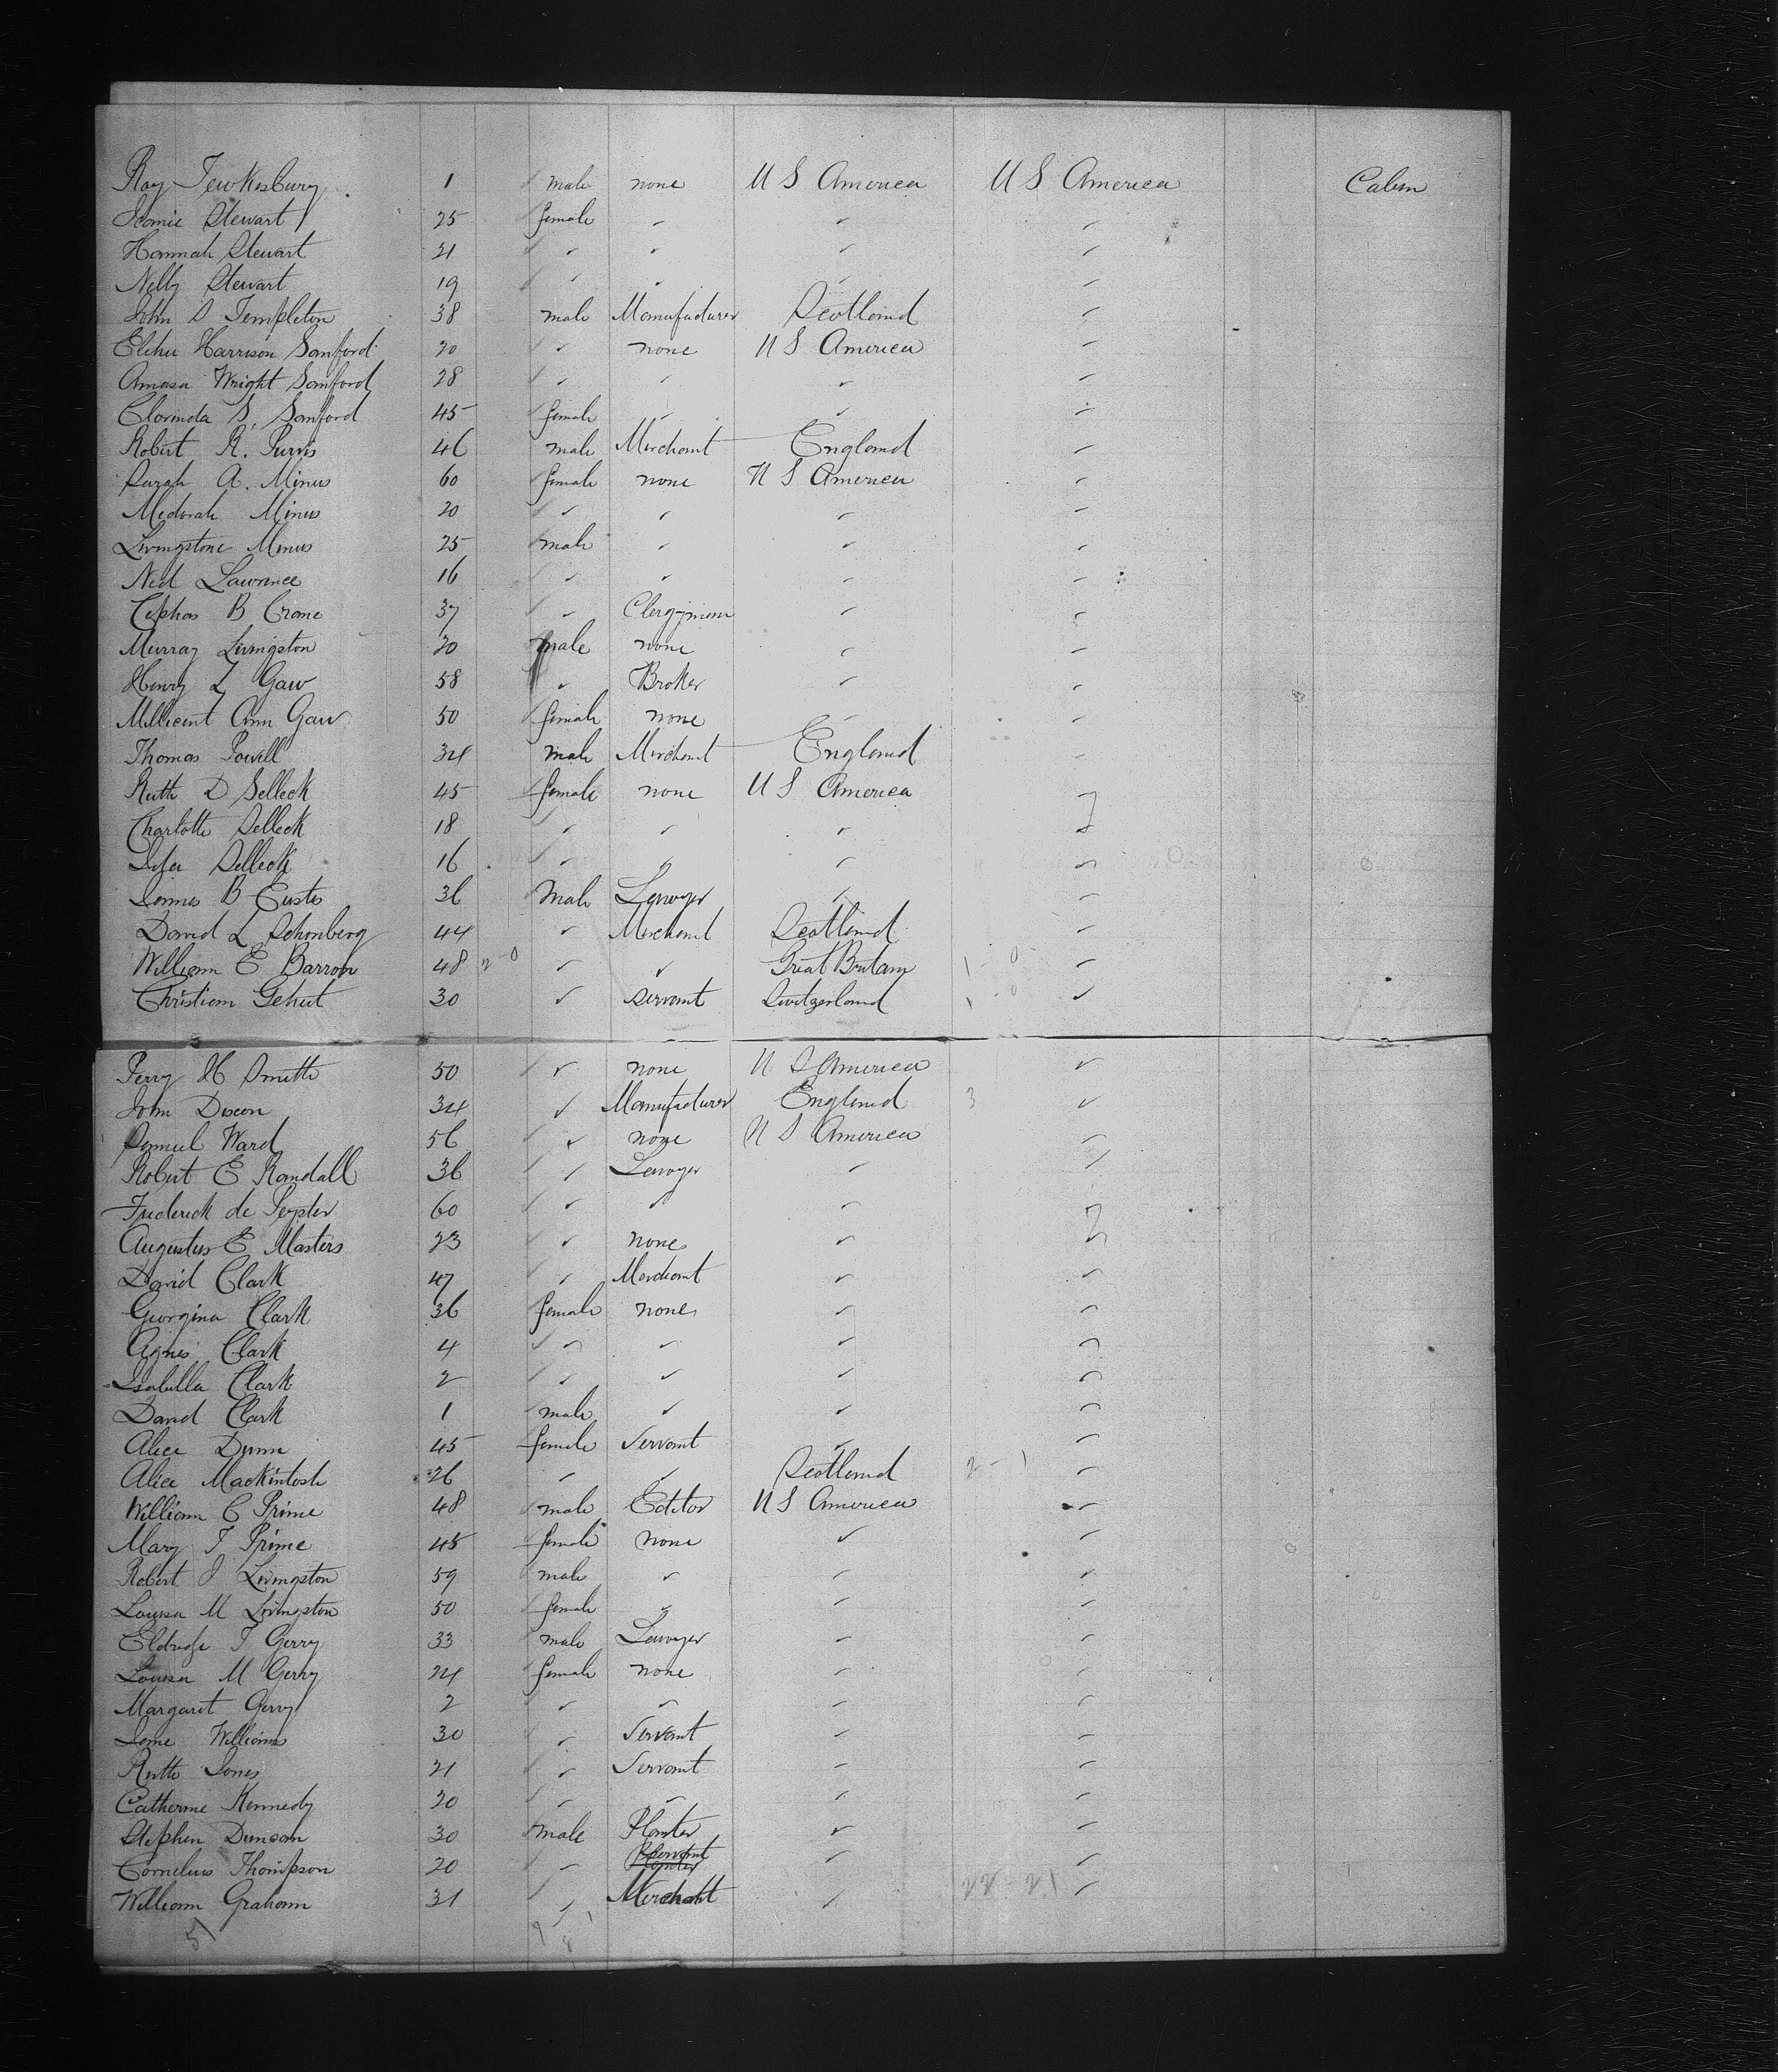 Ray Tewkesbury 1 male none U S America U S America Cabin
Jeomie Stewart 25 female " " "
Hannah Stewart 21 " " " "
Nelly Stewart 19 " " " "
John S Templeton 38 male Manufacturer Scotland "
Elihu Harrison Sanford 20 " none U S America "
Amasa Wright Sanford 28 " " " "
Clorinda S. Sanford 45 female " " "
Robert R. Purvis 46 male Merchant England "
Sarah A. Minus 60 female none U S America "
Medorah Minus 20 " " " "
Livingstone Minus 25 male " " "
Ned Lawrence 16 " " " "
Cephas B Crane 37 " Clergyman " "
Murray Livingston 20 male none " "
Henry L Gaw 58 " Broker " "
Millicent Ann Gaw 50 female none " "
Thomas Powell 34 male Merchant England "
Ruth D Selleck 45 female none U S America "
Charlotte Selleck 18 " " " "
Selleck 16 " " " "
James B Eustis 36 male Lawyer " "
David L Schonberg 44 " Merchant Scotland "
William E Barron 48 2-0 " " Great Britain 1-0 "
Christian Gehut 30 " servant Switzerland 1-0 "
Perry H Smith 50 " none U S America "
John Dixon 34 " Manufacturer England 3 "
Samuel Ward 56 " none U S America "
Robert E Randall 36 " Lawyer " "
Frederick de Peyster 60 " " " "
Augustus E Masters 23 " none " "
David Clark 47 " Merchant " "
Georgina Clark 36 female none " "
Agnes Clark 4 " " " "
Isabella Clark 2 " " " "
David Clark 1 male " " "
Alice Dunn 45 female Servant " "
Alice Mackintosh 26 " " Scotland 2-1 "
William C Prime 48 male Editor U S America "
Mary T Prime 45 female none " "
Robert J Livingston 59 male " " "
Louisa M Livingston 50 female " " "
Eldridge T Gerry 33 male Lawyer " "
Louisa M Gerry 24 female none " "
Margaret Gerry 2 " " " "
Jane Williams 30 " Servant " "
Ruth Jones 21 " Servant " "
Catherine Kennedy 20 " " " "
Stephen Duncan 30 male Planter " "
Cornelius Thompson 20 " Servant " "
William Graham 31 " Merchant " "
51